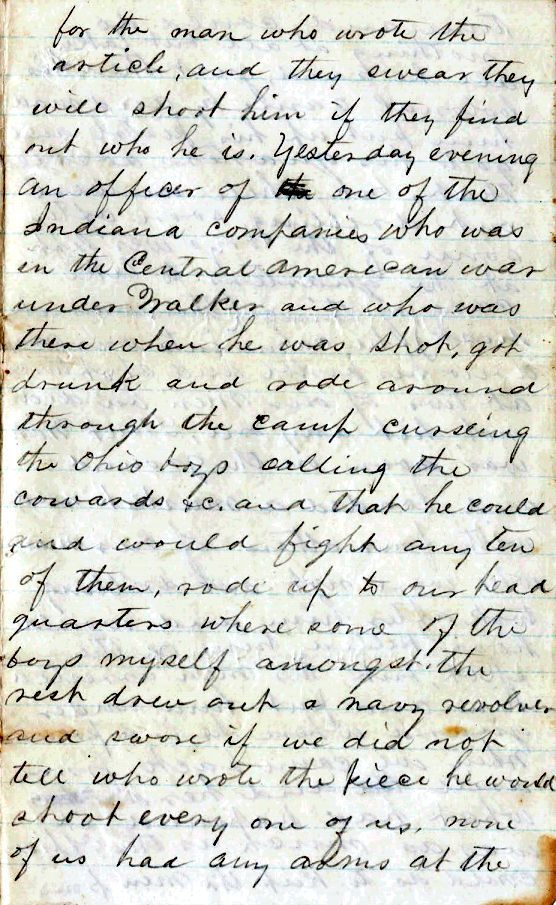 for the man who wrote the
article, and they swear they
will shoot him if they find
out who he is. Yesterday evening
an officer of one of the
Indiana companies who was
in the Central American war
under Walker and who was
there when he was shot, got
drunk and rode around
through the camp curseing
the Ohio boys calling the
cowards &c. and that he could
and would fight any ten
of them, rode up to our head
quarters where some of the
boys myself amongst. the
rest drew out a navy revolver
and swore if we did not
tell who wrote the piece he would
shoot every one of us. none
of us had any arms at the